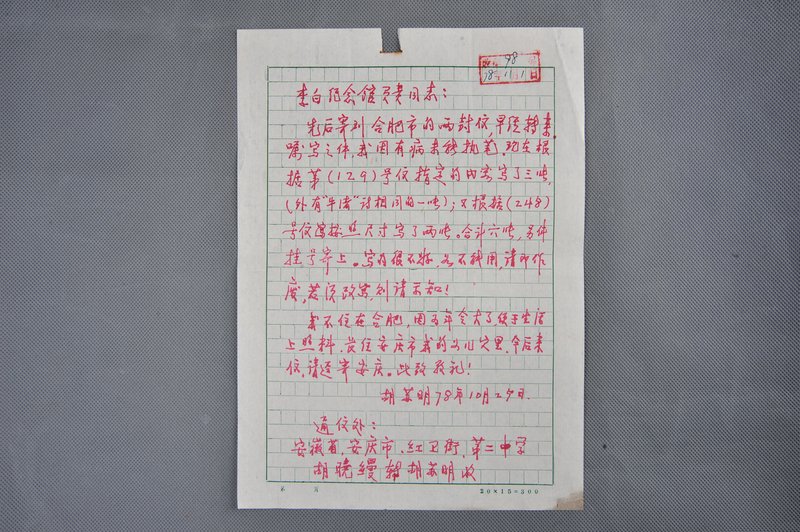 98
78 11 1
李白纪念馆负责同志：
先后寄到合肥市的两封信，早经转来。
嘱写之件，我因有病未能执笔。现在根
据第(129)号信指定的内容写了三张，
(外有“牛渚”诗相同的一张)；又根据(248)
号信遵照尺寸写了两张。合计六张，另件
挂号寄上。写的很不好，如不科用，请即作
废，若须改写，则请示知！
我不住在合肥，因为年令大了，便于生活
上照料，长住安庆市我的女儿家里，今后来
信，请迳寄安庆。此致敬礼！
胡苏明78年10月29日.
通信处：
安徽省，安庆市，红卫街，第二中学
胡晓缦转胡苏明收
第 页
20×15=300